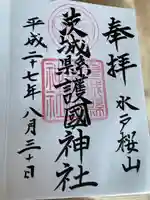 奉拝
水戸桜山
茨城縣護國神社
平成二十七年八月三十日